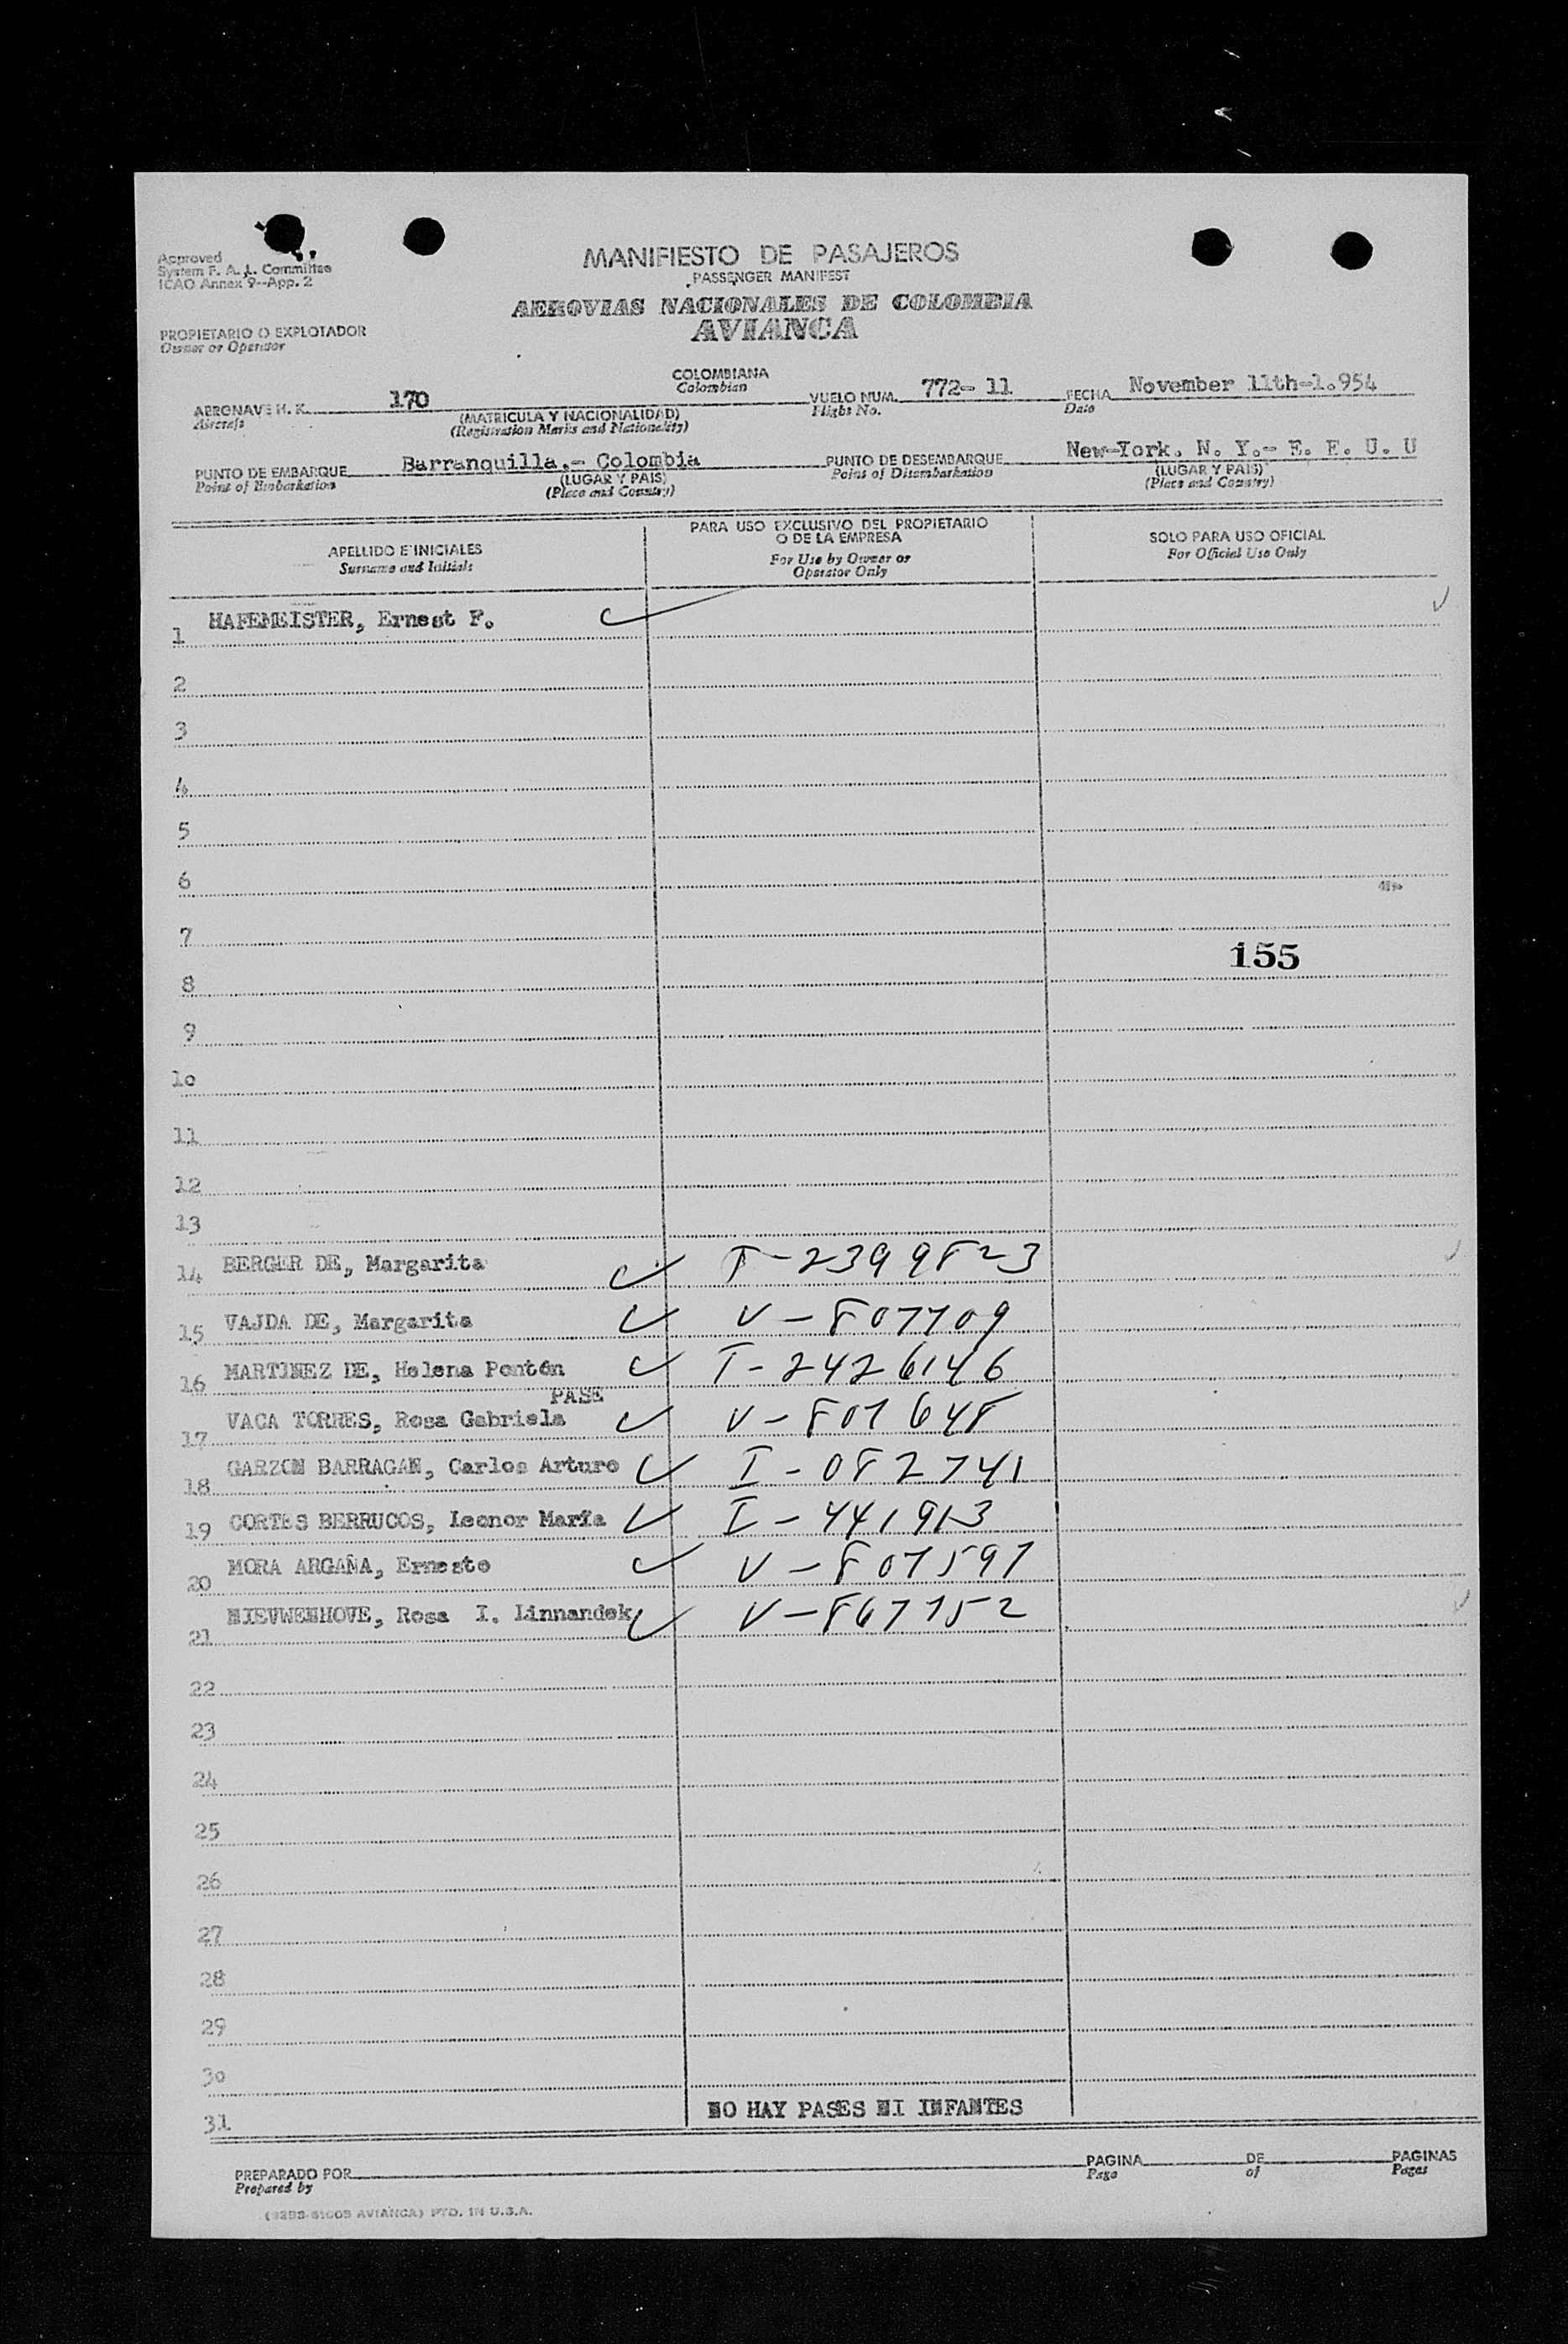 Approved
System F. A. L. Committee
ICAO Annex 9--App. 2
MANIFIESTO DE PASAJEROS
PASSENGER MANIFEST
AEROVIAS NACIONALES DE COLOMBIA
AVIANCA
PROPIETARIO O EXPLOTADOR
Owner or Operator
COLOMBIANA
Colombian
AERONAVE H. K. 170 VUELO NUM. 772- 11 FECHA November 11th-1.954
Aircraft (MATRICULA Y NACIONALIDAD) Flight No. Date
(Registration Marks and Nationality)
PUNTO DE EMBARQUE Barranquilla.- Colombia PUNTO DE DESEMBARQUE New-York. N. Y.- E. E. U. U
Point of Embarkation (LUGAR Y PAIS) Point of Disembarkation (LUGAR Y PAIS)
(Place and Country) (Place and Country)
APELLIDO E INICIALES PARA USO EXCLUSIVO DEL PROPIETARIO SOLO PARA USO OFICIAL
Surname and Initials O DE LA EMPRESA For Official Use Only
For Use by Owner or
Operator Only
1 HAFEMEISTER, Ernest F.
2
3
4
5
6
7
155
8
9
10
11
12
13
14 BERGER DE, Margarita T-2399823
15 VAJDA DE, Margarita V-807709
16 MARTINEZ DE, Helena Pontón T-2426146
PASE
17 VACA TORRES, Rosa Gabriela V-807648
18 GARZON BARRAGAN, Carlos Arturo I-082741
19 CORTES BERRUCOS, Leonor María I-441913
20 MORA ARGAÑA, Ernesto V-807597
21 NIEUWENHOVE, Rosa I. Linnandek V-867752
22
23
24
25
26
27
28
29
30
31 NO HAY PASES NI INFANTES
PREPARADO POR PAGINA DE PAGINAS
Prepared by Page of Pages
AVIANCA) PTD. IN U.S.A.